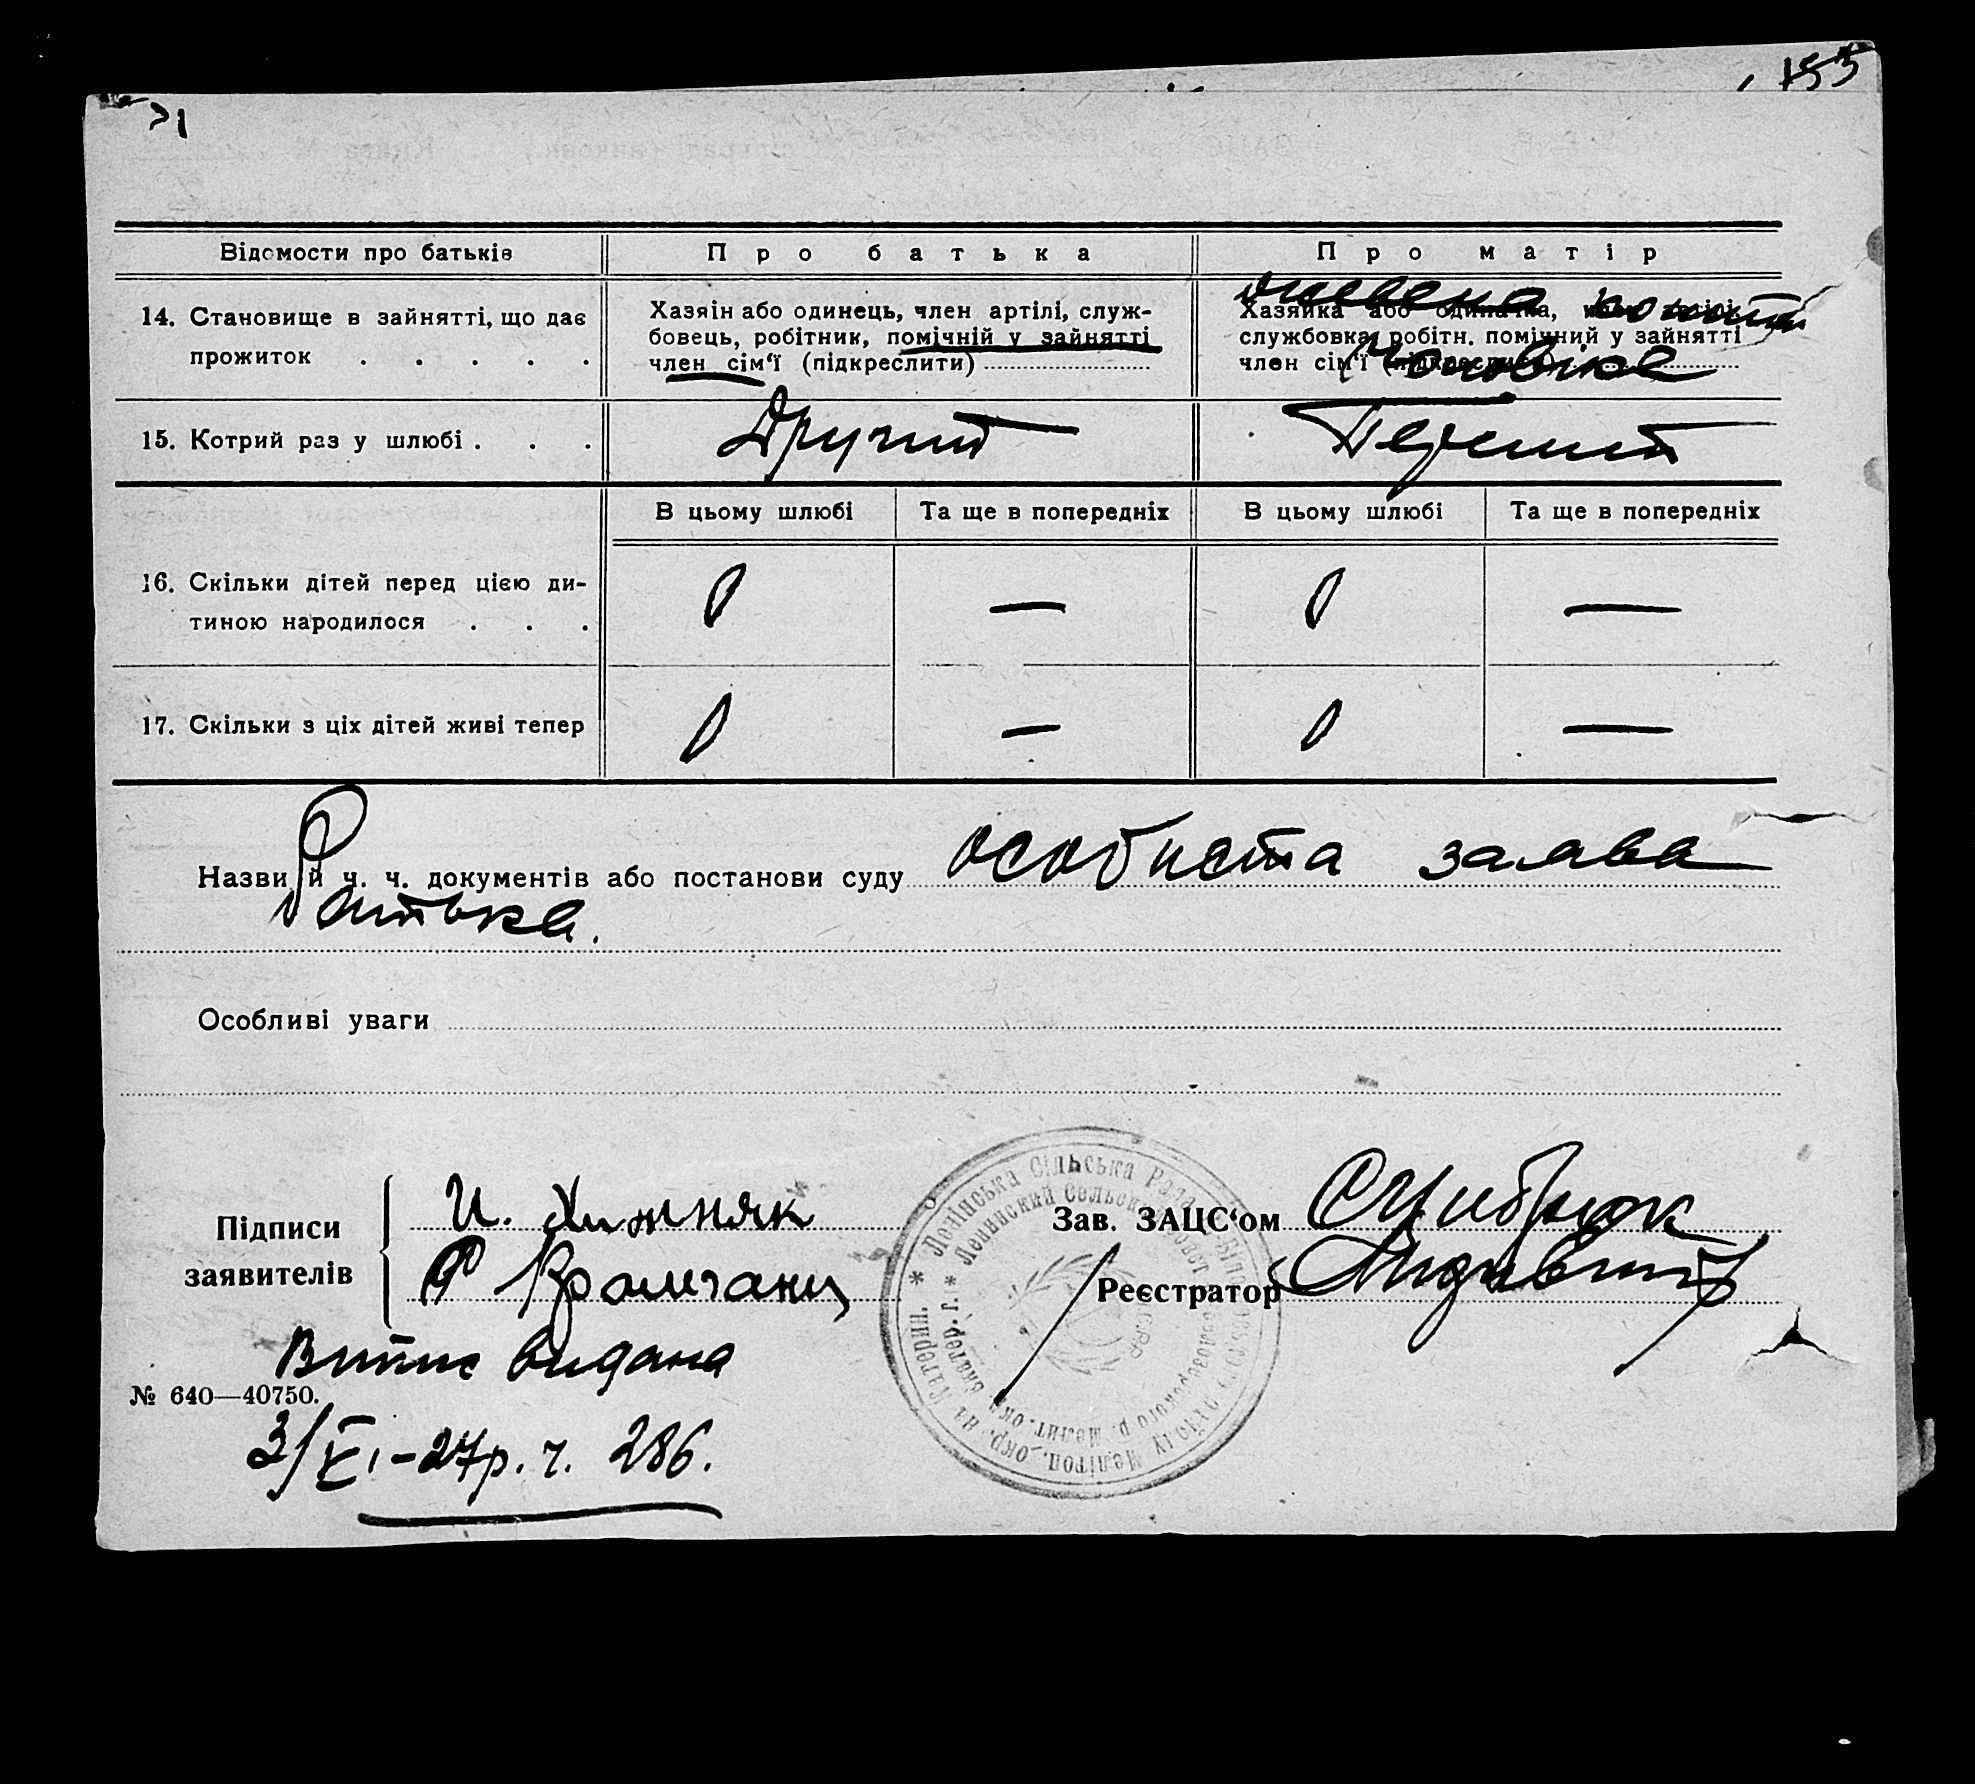 155
Відомости про батьків
Про батька
Про матір
14. Становище в зайнятті, що дає прожиток . . . . .
Хазяін або одинець, член артілі, служ-
бовець, робітник, помічній у зайнятті
член сім‘ї (підкреслити)
Хазяйка або одиначка,
службовка, робітн. помічний у зайнятті
член сім‘ї (підкреслити)
чоловіка
15. Котрий раз у шлюбі . . .
Другий
Перший
В цьому шлюбі
Та ще в попередніх
В цьому шлюбі
Та ще в попередніх
16. Скільки дітей перед цією ди-
тиною народилося . . .
0 — 0 —
17. Скільки з ціх дітей живі тепер
0 — 0 —
Назви й ч. ч. документів або постанови суду особиста заява
Батька.
Особливі уваги
Підписи
заявителів
И. Хижняк
Зав. ЗАЦС‘ом
Реєстратор
Ленінська Сільська Рада
Ленинский Сельск
Витис видана
№ 640—40750.
3/XI-27р. ч. 286.